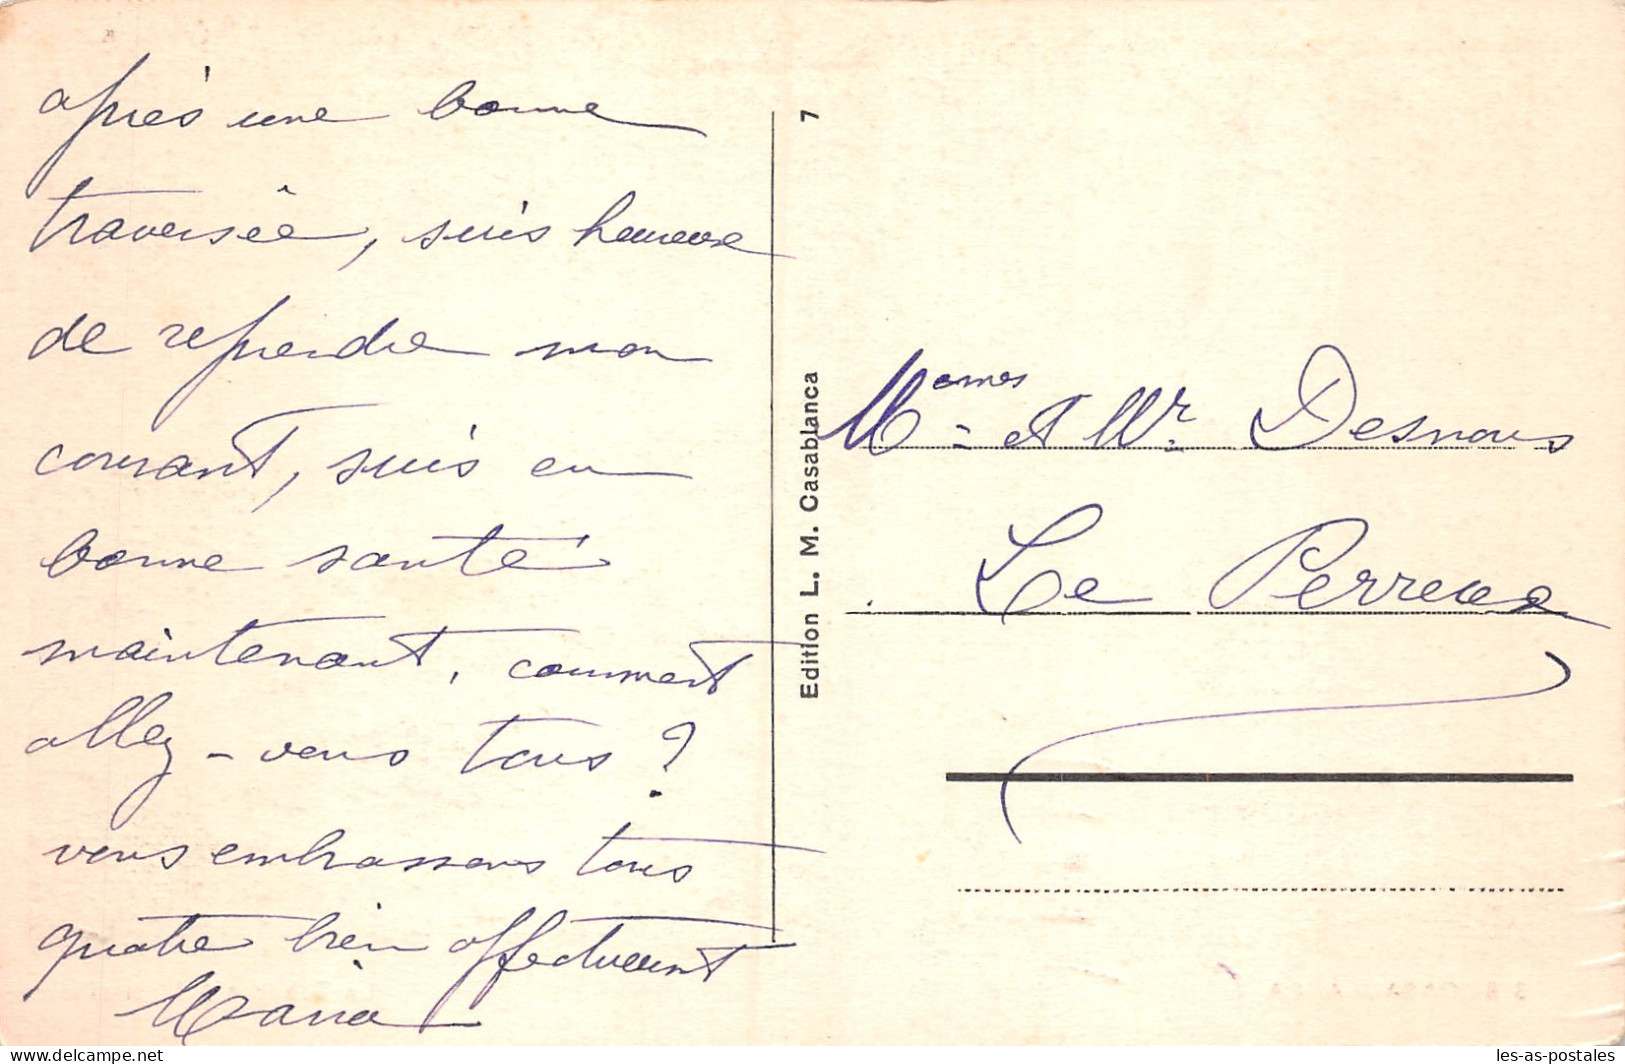 après une bonne
traversée, suis heureuse
de reprendre mon
courant, suis en
bonne santé
maintenant, comment
allez-vous tous ?
vous embrassons tous
quatre bien affectueusement
Maria
7
Edition L. M. Casablanca
Mesdames et Mr Desnous
Le Perreux
www.delcampe.net
les-as-postales